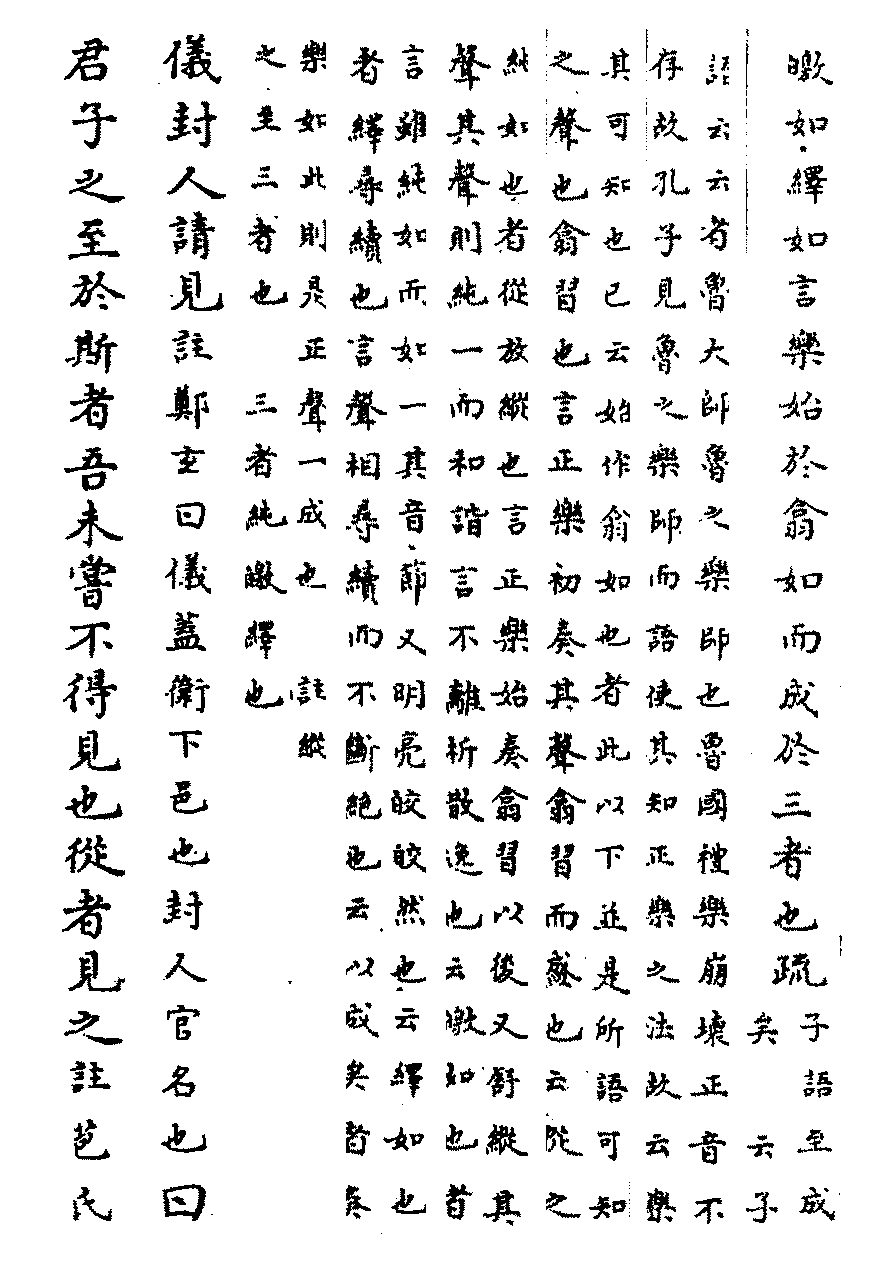 皦如繹如言樂始於翕如而成於三者也疏
子語至成
矣　云子
語云云者魯大師魯之樂師也魯國禮樂崩壞正音不
存故孔子見魯之樂師而語使其知正樂之法故云樂
其可知也已云始作翕如也者此以下並是所語可知
之聲也翕習也言正樂初奏其聲翕習而盛也云從之
純如也者從放縱也言正樂始奏翕習以後又舒縱其
聲其聲則純一而和諧言不離析散逸也云皦如也者
言雖純如而如一其音節又明亮皎皎然也云繹如也
者繹尋續也言聲相尋續而不斷絕也云以成矣者奏
樂如此則是正聲一成也　註縱
之至三者也　三者純皦繹也
儀封人請見註鄭玄曰儀蓋衛下邑也封人官名也曰
君子之至於斯者吾未嘗不得見也從者見之註苞氏